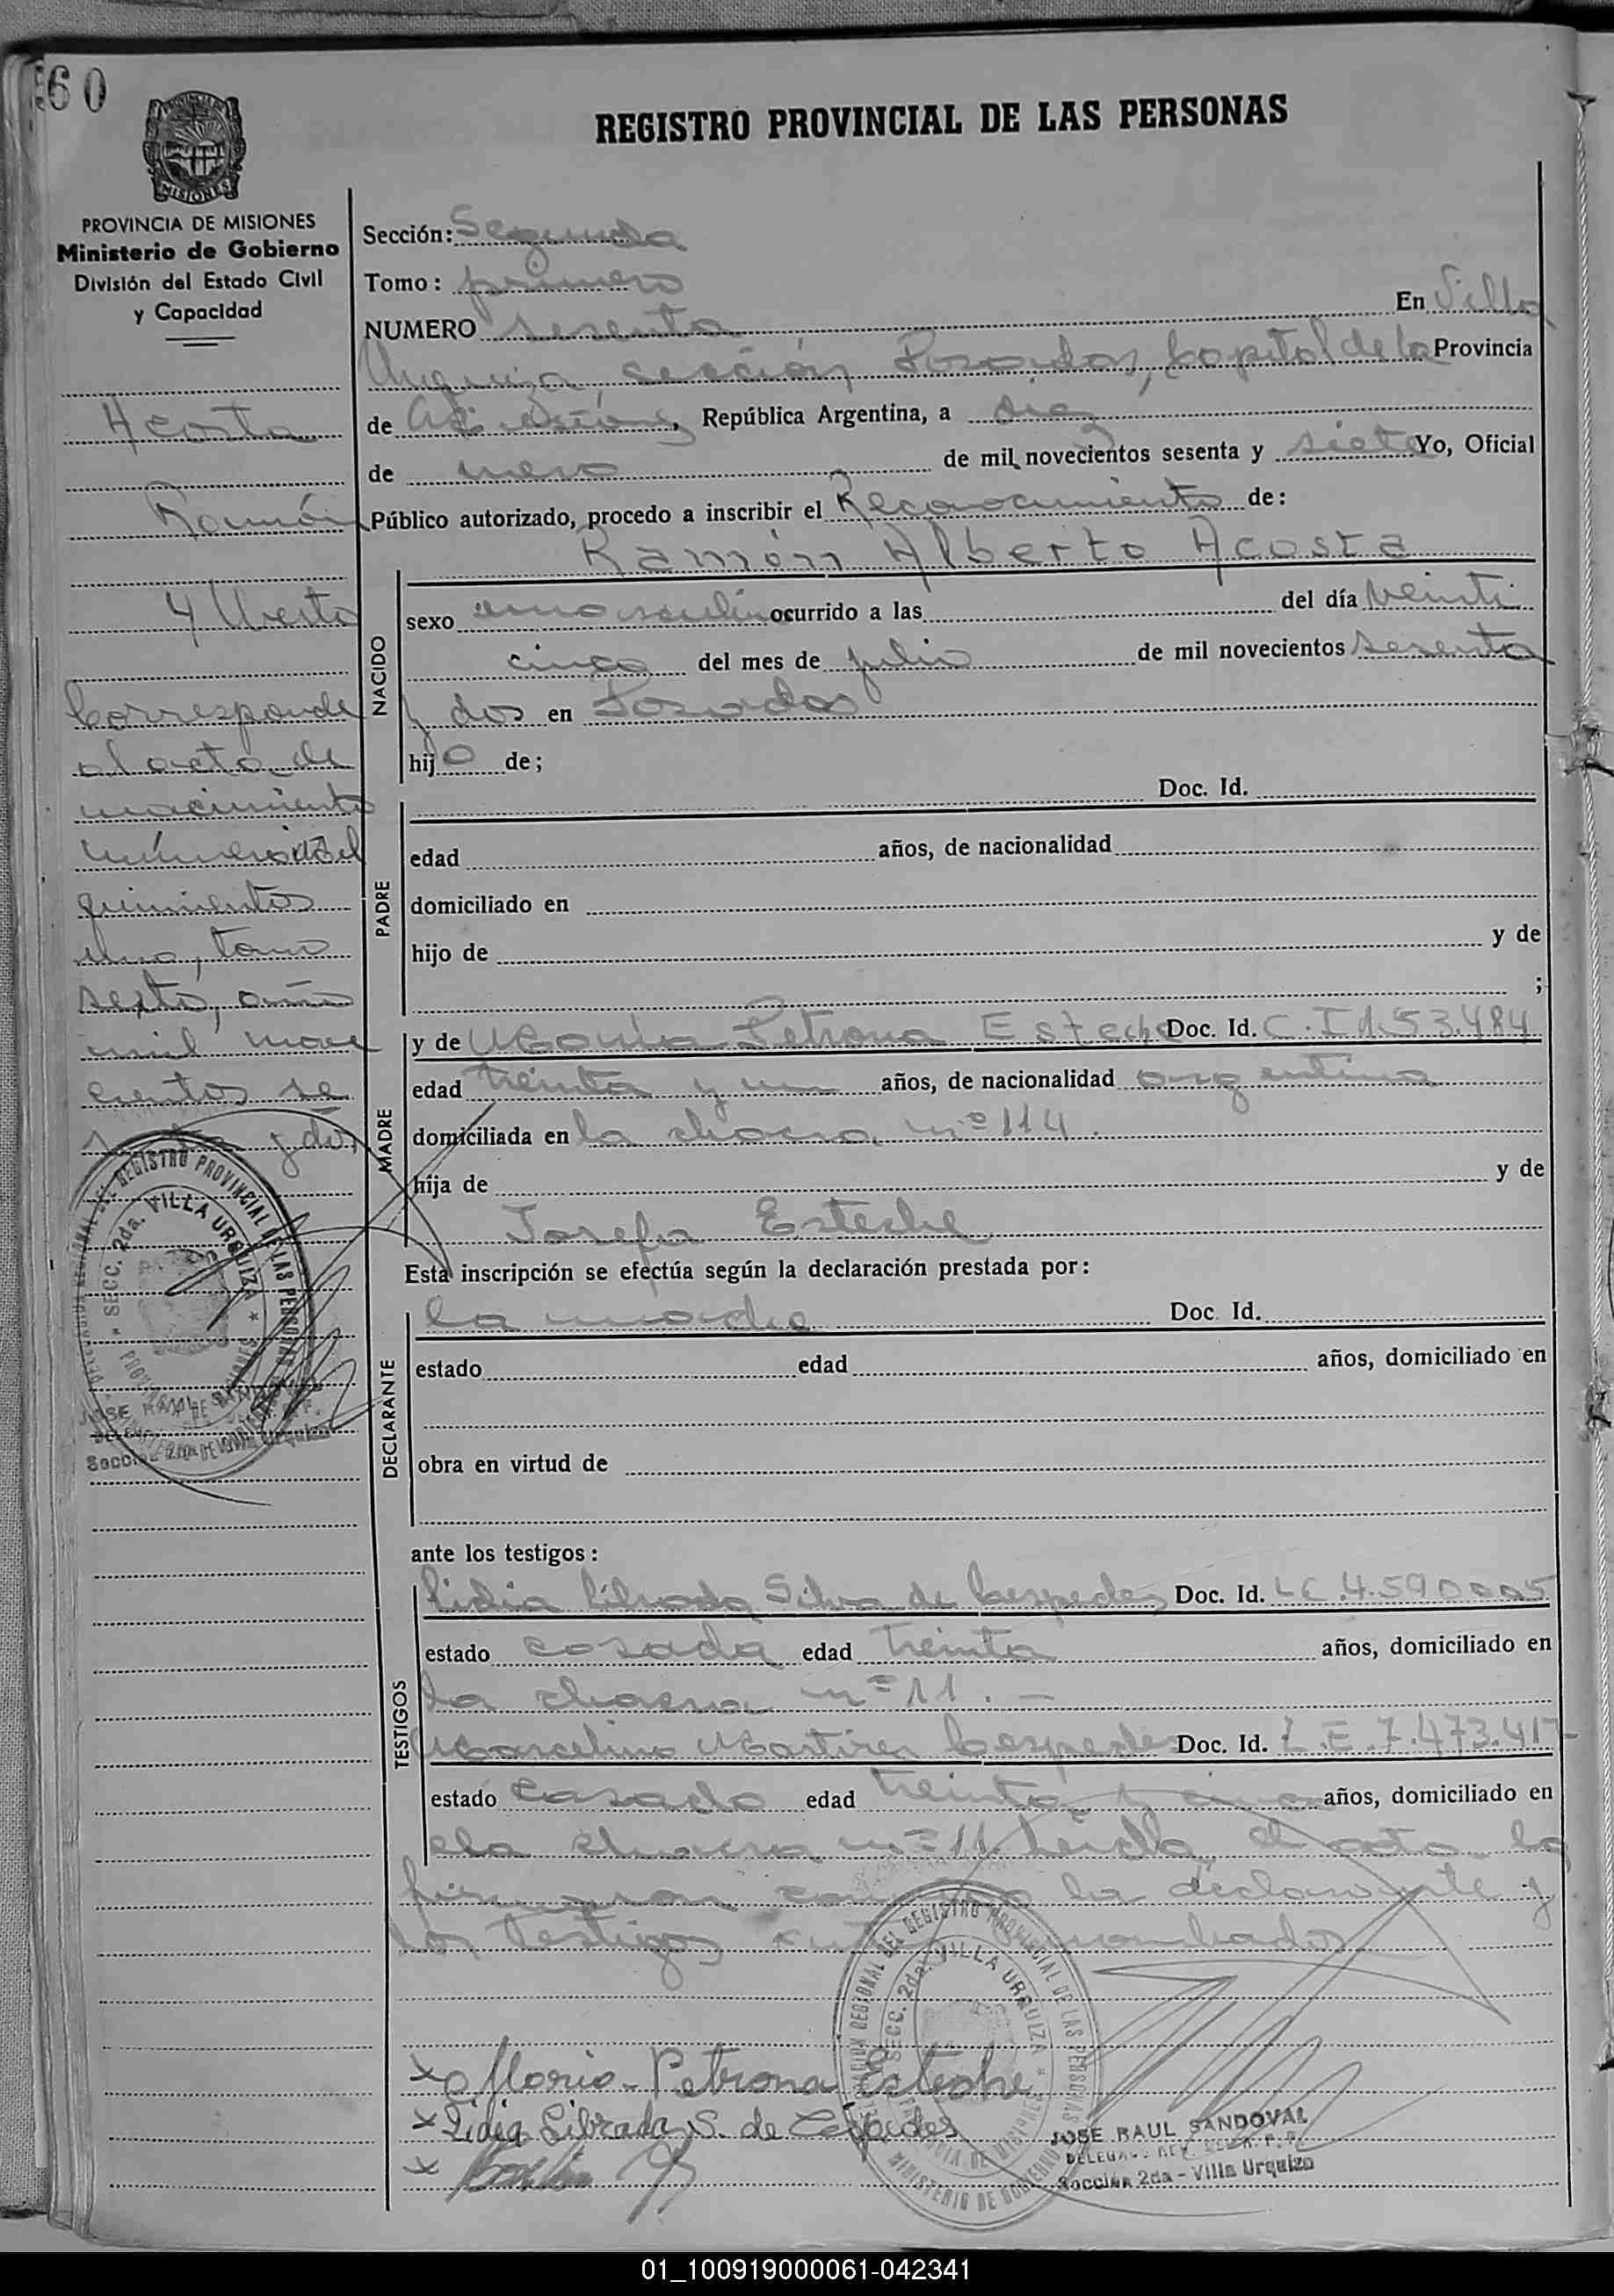 60
REGISTRO PROVINCIAL DE LAS PERSONAS
PROVINCIA DE MISIONES
Ministerio de Gobierno
División del Estado Civil
y Capacidad
Acosta
Ramón
Alberto
Corresponde
al acta de
nacimiento
número
quinientos
uno, tomo
sexto, año
mil nove
cientos se
senta y dos
Sección: Segunda
Tomo: primero
NUMERO sesenta En Villa
Urquiza sección Posadas, Capital de la Provincia
de Misiones, República Argentina, a diez
de enero de mil novecientos sesenta y siete Yo, Oficial
Público autorizado, procedo a inscribir el Reconocimiento de:
Ramón Alberto Acosta
NACIDO
sexo masculino ocurrido a las del día veinti
cinco del mes de julio de mil novecientos sesenta
y dos en Posadas
hijo de;
PADRE
Doc. Id.
edad años, de nacionalidad
domiciliado en
hijo de y de
;
MADRE
y de María Petrona Esteche Doc. Id. C.I 153.484
edad treinta y un años, de nacionalidad argentina
domiciliada en la chacra nº 114.
hija de y de
Josefa Esteche
Esta inscripción se efectúa según la declaración prestada por:
DECLARANTE
la madre Doc. Id.
estado edad años, domiciliado en
obra en virtud de
ante los testigos:
TESTIGOS
Lidia Librada Silva de Cespedes Doc. Id. LC.4.590005
estado casada edad treinta años, domiciliado en
la chacra nº 11. —
Marcelino Martires Cespedes Doc. Id. L.E.7.473.417
estado casado edad treinta y años, domiciliado en
la chacra nº 11. Leida el acta la
firmaron conmigo la declarante y
los testigos nombrados
x Maria Petrona Esteche
x Lidia Librada S. de Cespedes
x
DELEGACION REGIONAL DEL REGISTRO PROVINCIAL DE LAS PERSONAS
SECC. 2da. VILLA URQUIZA
MINISTERIO DE GOBIERNO
JOSE RAUL SANDOVAL
Sección 2da - Villa Urquiza
01_100919000061-042341